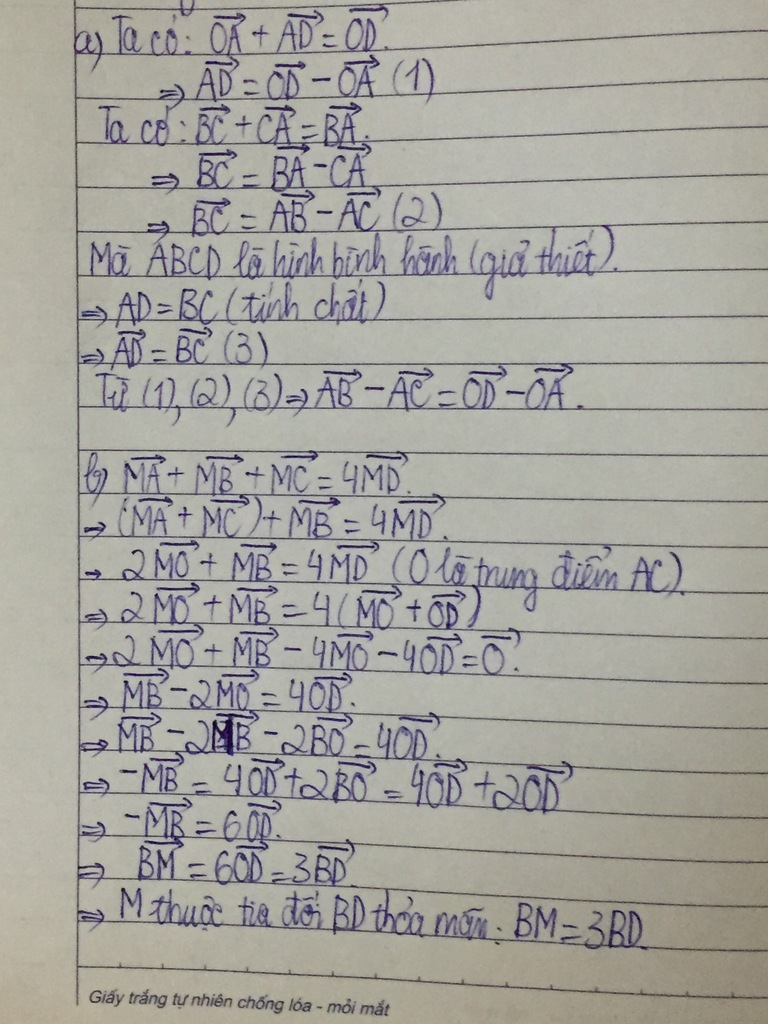 a) Ta có: OA→ + AD→ = OD→.
⇒ AD→ = OD→ - OA→ (1)
Ta có: BC→ + CA→ = BA→.
⇒ BC→ = BA→ - CA→
⇒ BC→ = AB→ - AC→ (2)
Mà ABCD là hình bình hành (giả thiết).
⇒ AD = BC (tính chất)
⇒ AD→ = BC→ (3)
Từ (1), (2), (3) ⇒ AB→ - AC→ = OD→ - OA→.
b) MA→ + MB→ + MC→ = 4MD→.
⇒ (MA→ + MC→) + MB→ = 4MD→.
⇒ 2MO→ + MB→ = 4MD→ (O là trung điểm AC).
⇒ 2MO→ + MB→ = 4(MO→ + OD→)
⇒ 2MO→ + MB→ - 4MO→ - 4OD→ = O→.
⇒ MB→ - 2MO→ = 4OD→.
⇒ MB→ - 2MB→ - 2BO→ = 4OD→.
⇒ -MB→ = 4OD→ + 2BO→ = 4OD→ + 2OD→
⇒ -MB→ = 6OD→.
⇒ BM→ = 6OD→ = 3BD→.
⇒ M thuộc tia đối BD thỏa mãn: BM = 3BD.
Giấy trắng tự nhiên chống lóa - mỏi mắt